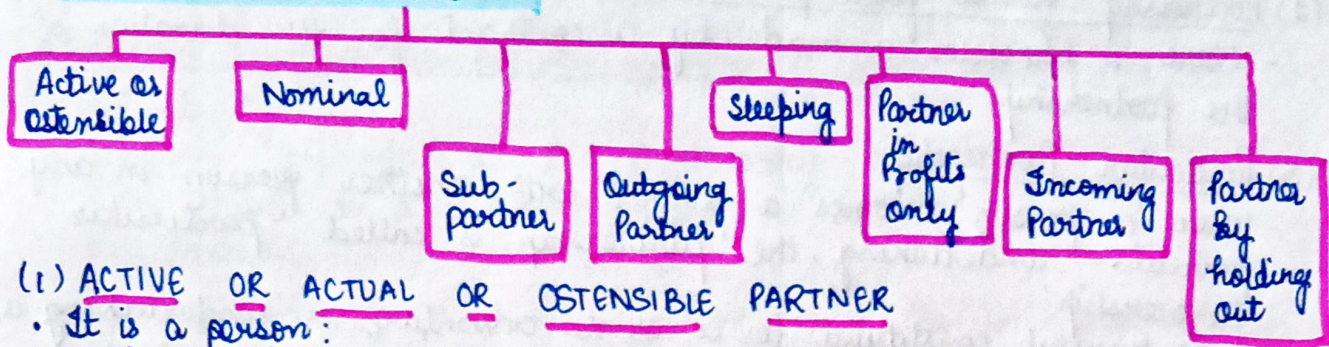 Active or
ostensible
Nominal
Sub-
partner
Outgoing
Partner
Sleeping
Partner
in
Profits
only
Incoming
Partner
Partner
by
holding
out
(1) ACTIVE OR ACTUAL OR OSTENSIBLE PARTNER
· It is a person: